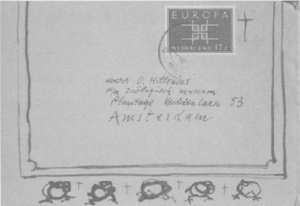 EUROPA
NEDERLAND 12 c
doctor D. Hillenius
p/a zoölogisch museum
Plantage Middenlaan 53
Amsterdam